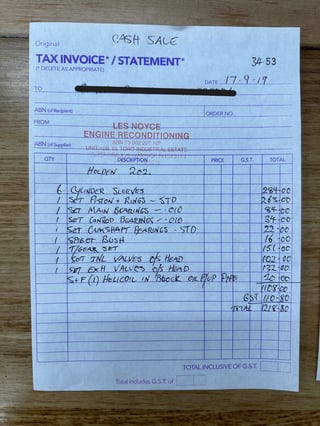 CASH SALE
Original
TAX INVOICE* / STATEMENT*
(* DELETE AS APPROPRIATE)
3453
DATE: 17-9-19
TO
ABN (of Recipient)
ORDER NO.
FROM
LES NOYCE
ENGINE RECONDITIONING
ABN (of Supplier)
QTY DESCRIPTION PRICE G.S.T. TOTAL
HOLDEN 202.
6 CYLINDER SLEEVES 284-00
1 SET PISTON + RINGS - STD 263-00
1 SET MAIN BEARINGS - .010 84-00
1 SET CONROD BEARINGS - .010 34-00
1 SET CAMSHAFT BEARINGS - STD 22-00
1 SPIGOT BUSH 16-00
1 T/GEAR SET 151-00
1 SET INL VALVES O/S HEAD 102-00
1 SET EXH VALVES O/S HEAD 132-00
S+F (1) HELICOIL IN BLOCK OR PIPE 20-00
1108-00
GST 110-80
TOTAL 1218-80
TOTAL INCLUSIVE OF G.S.T.
Total includes G.S.T. of